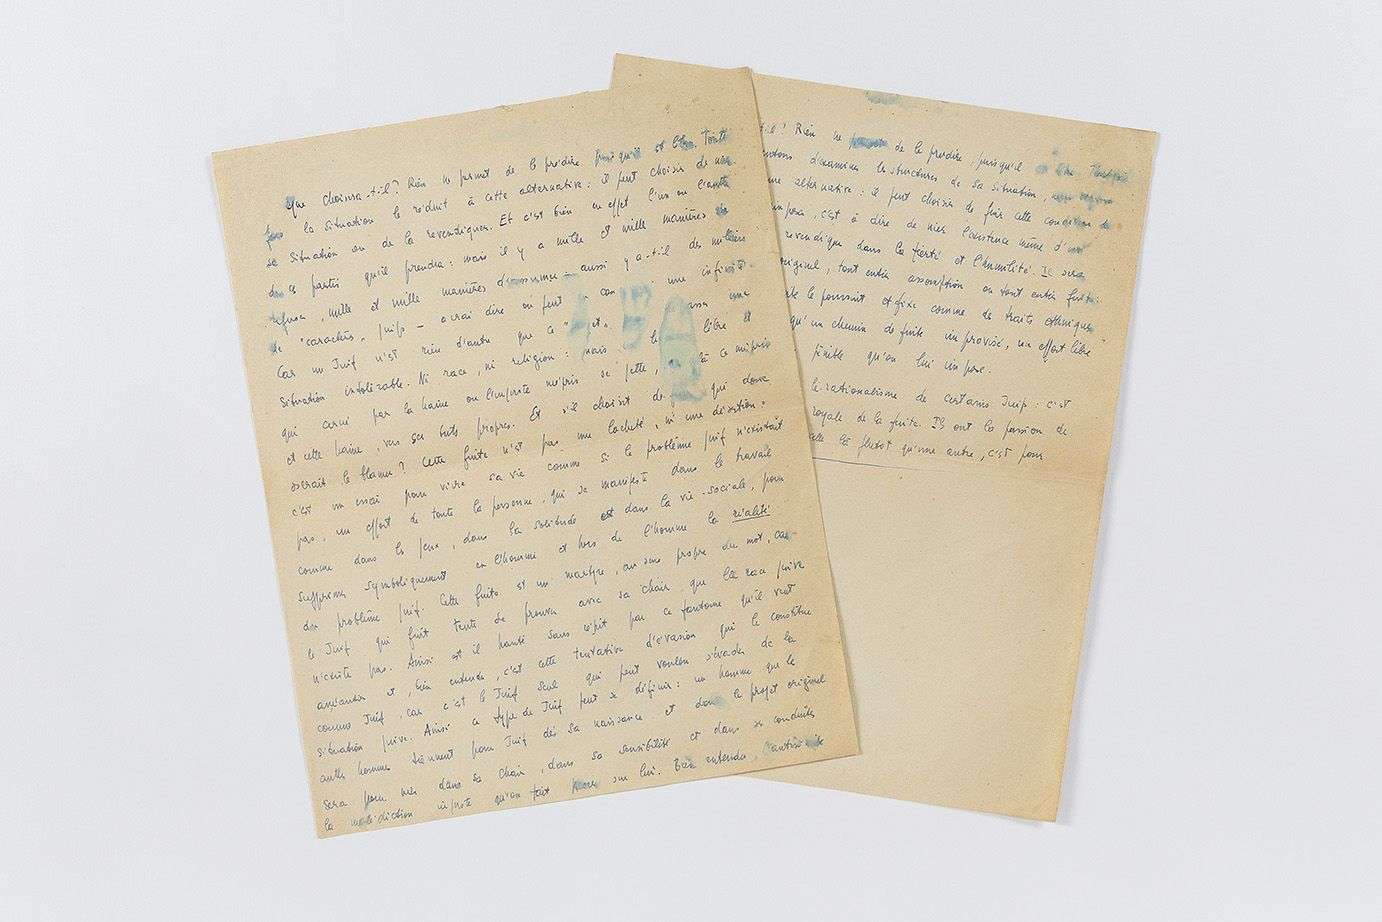 Que choisira-t-il? Rien ne permet de le prédire puisqu'il est libre. Toute
la situation le réduit à cette alternative: il peut choisir de nier
sa situation ou de la revendiquer. Et c'est bien en effet l'un ou l'autre
de ces partis qu'il prendra: mais il y a mille et mille manières de
refuser, mille et mille manières d'assumer: aussi y a-t-il des milliers
de "caractères" juifs - à vrai dire on peut une infinité.
Car un Juif n'est rien d'autre que ce une
situation intolérable. Ni race, ni religion: mais le libre et
qui cerné par la haine ou l'injuste mépris se jette, à ce mépris
et cette haine, vers ses buts propres. Et s'il choisit de qui donc
oserait le blâmer? Cette fuite n'est pas une lâcheté, ni une désertion:
c'est un essai pour vivre sa vie comme si le problème juif n'existait
pas; un effort de toute la personne, qui se manifeste dans le travail
comme dans les jeux, dans la solitude et dans la vie sociale, pour
supprimer symboliquement en l'homme et hors de l'homme la réalité
du problème juif. Cette fuite est un martyre, au sens propre du mot, car
le Juif qui fuit tente de prouver avec sa chair que la race juive
n'existe pas. Ainsi est-il hanté sans répit par ce fantôme qu'il veut
anéantir et, bien entendu, c'est cette tentative d'évasion qui le constitue
comme Juif, car c'est le Juif seul qui peut vouloir s'évader de la
situation juive. Ainsi ce type de Juif peut se définir: un homme que les
autres hommes tiennent pour Juif dès sa naissance et dont le projet originel
sera pour nier dans sa chair, dans sa sensibilité et dans ses conduites
la malédiction injuste qu'on fait peser sur lui. Bien entendu, l'antisémite
-t-il? Rien ne de le prédire, puisqu'il
d'examiner les structures de sa situation,
alternative: il peut choisir de fuir cette condition
c'est à dire de nier l'existence même d'un
revendique dans la fierté et l'humilité. Il sera
originel, tout entier assomption ou tout entier fuite:
le poursuit et fixe comme de traits ethniques
qu'un chemin de fuite improvisé, un effort libre
pénible qu'on lui impose.
le rationalisme de certains Juifs: c'est
royale de la fuite. Ils ont la passion de
là plutôt qu'une autre, c'est pour